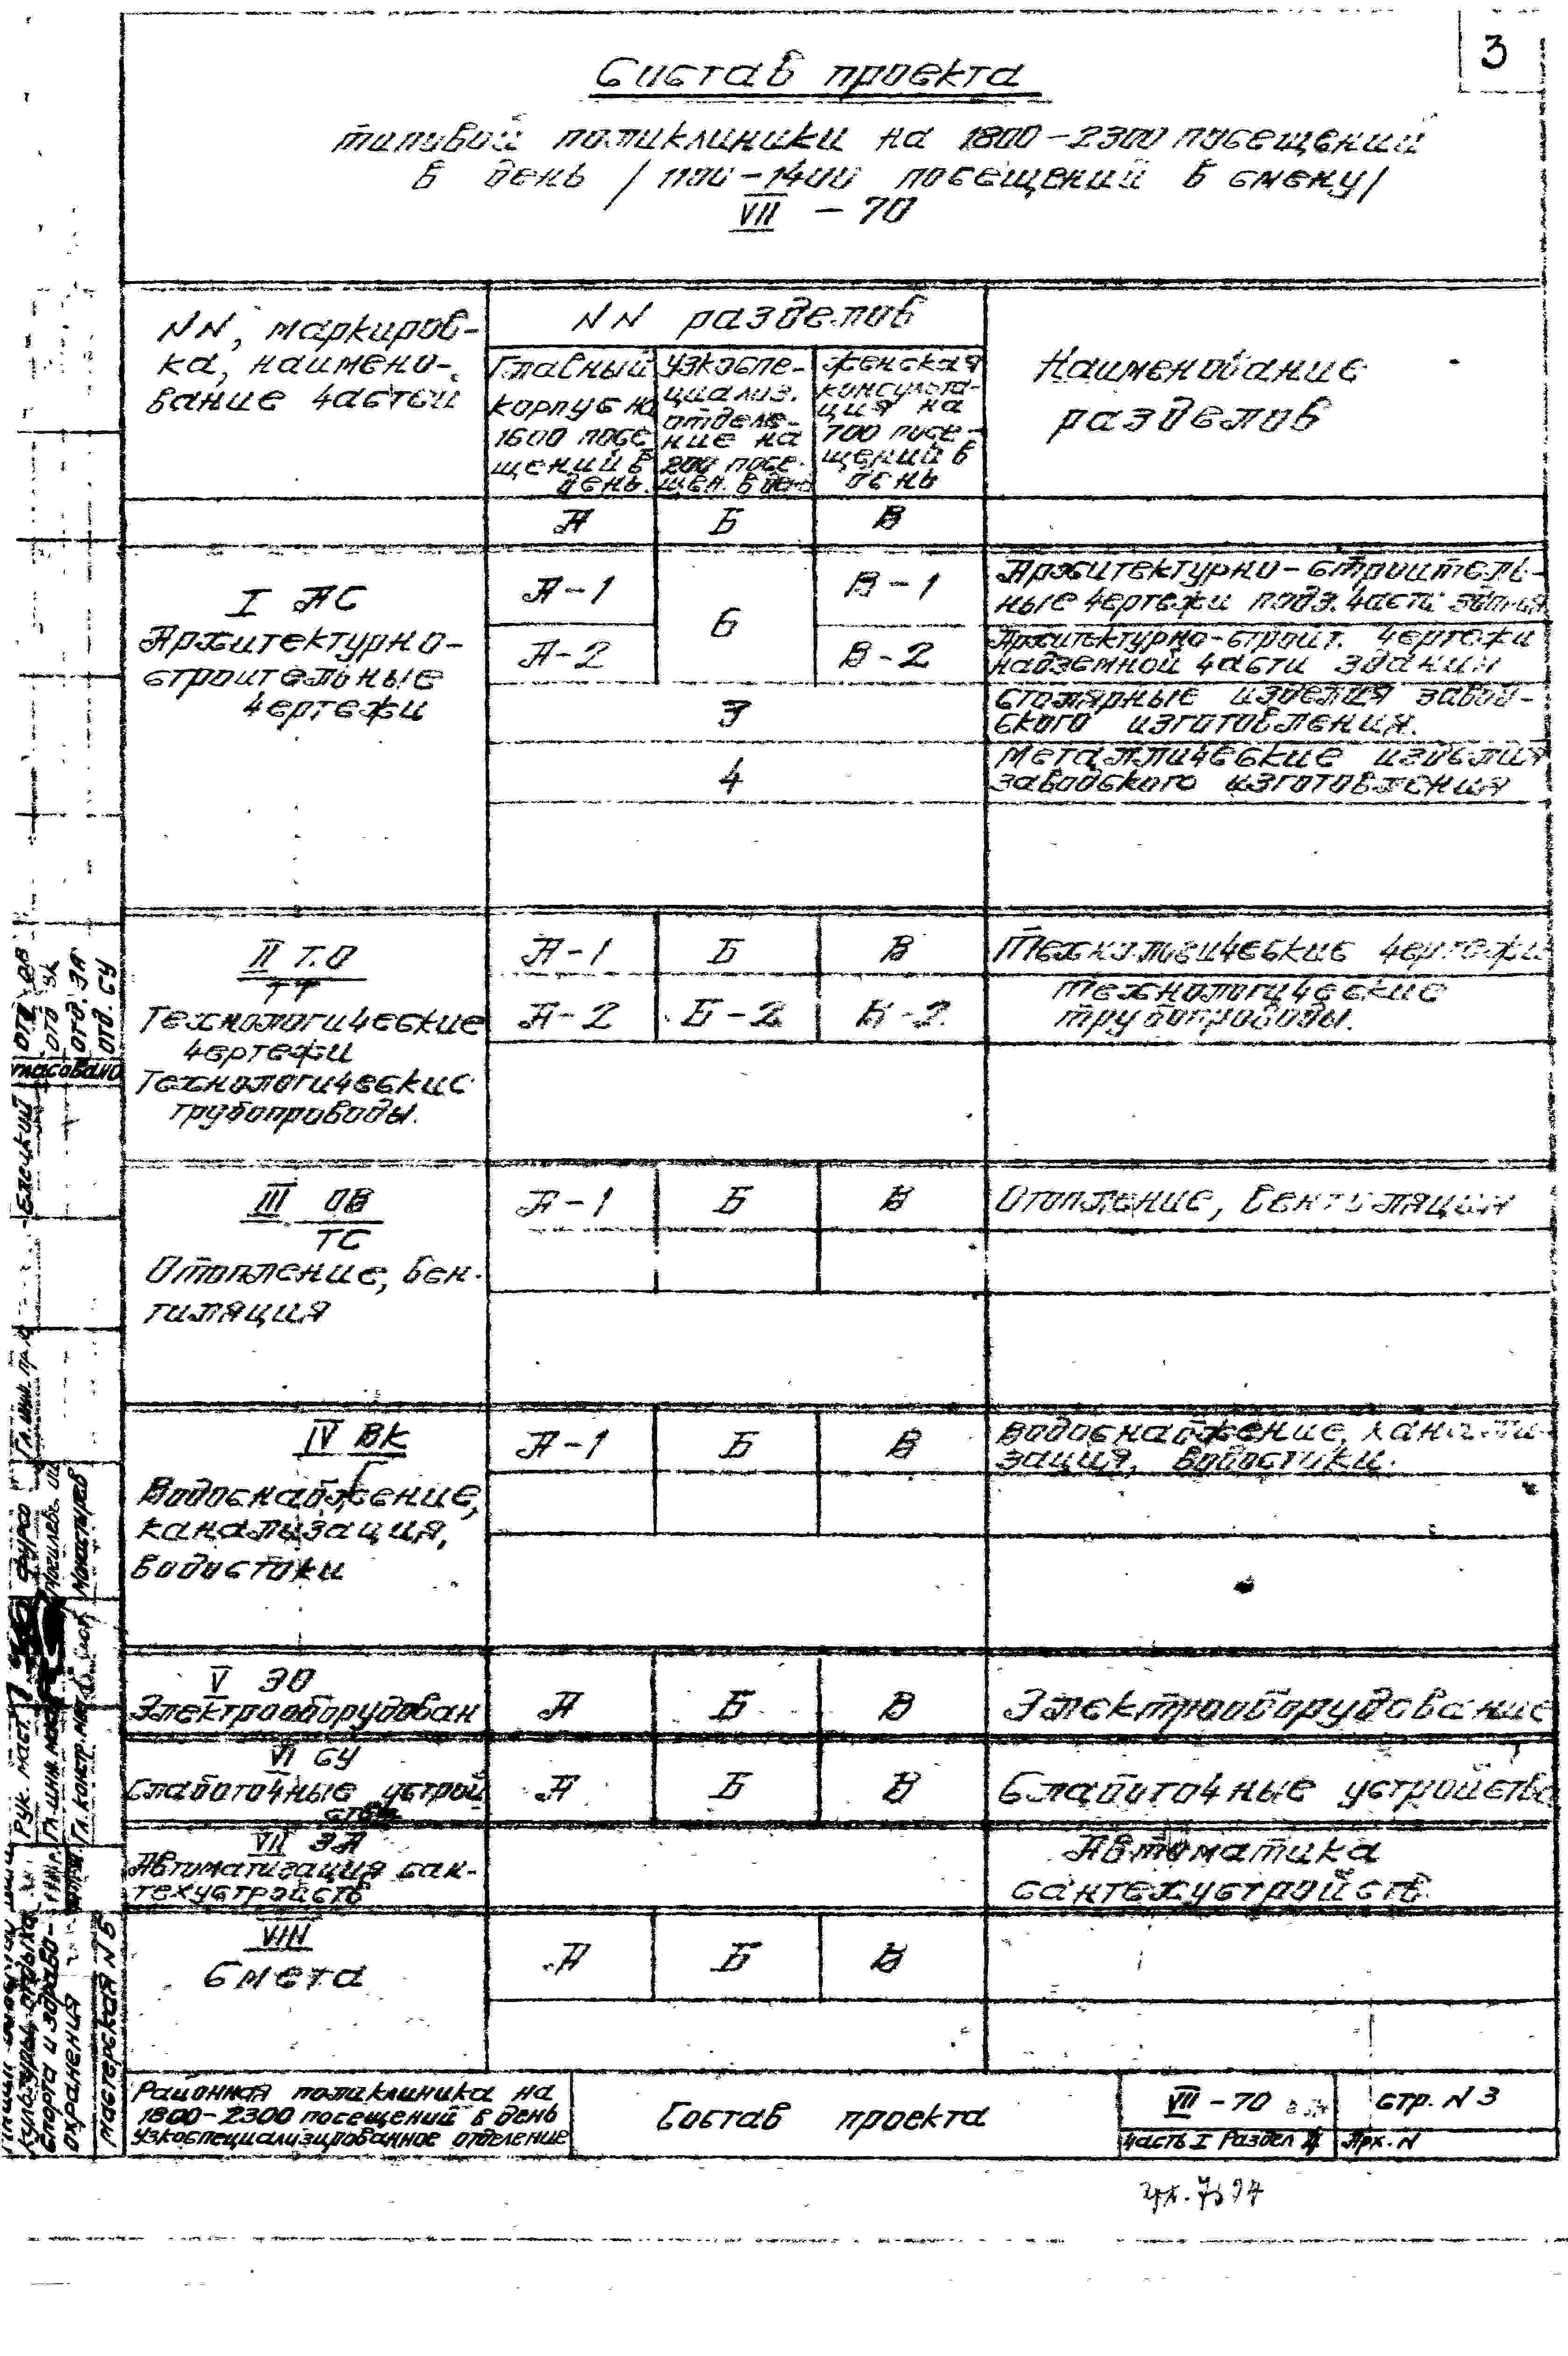 3
Состав проекта
типовой поликлиники на 1800-2300 посещений
в день /1100-1400 посещений в смену/
VII - 70
NN, маркиров-
ка, наимено-
вание частей
NN разделов
Главный
корпус на
1600 посе
щений в
день.
Узкоспе-
циализ.
отделе-
ние на
200 посе-
щен. в день
Женская
консульта-
ция на
700 посе-
щений в
день
Наименование
разделов
А Б В
I АС
Архитектурно-
строительные
чертежи
А-1
А-2
Б
В-1
В-2
3
4
Архитектурно-строитель-
ные чертежи подз. части здания
Архитектурно-строит. чертежи
надземной части здания
Столярные изделия завод-
ского изготовления.
Металлические изделия
заводского изготовления
II Т.О
ТТ
Технологические
чертежи
Технологические
трубопроводы.
А-1 Б В Технологические чертежи
А-2 Б-2 В-2 Технологические
трубопроводы.
III ОВ
ТС
Отопление, вен-
тиляция
А-1 Б В Отопление, вентиляция
IV ВК
Водоснабжение,
канализация,
водостоки
А-1 Б В Водоснабжение, канали-
зация, водостоки.
V ЭО
Электрооборудован
А Б В Электрооборудование
VI СУ
Слаботочные устрой
ства
А Б В Слаботочные устройства
VII ЭА
Автоматизация сан-
техустройств
Автоматика
сантехустройств
VIII
Смета
А Б В
Районная поликлиника на
1800-2300 посещений в день
узкоспециализированное отделение
Состав проекта
VII - 70
Часть I Раздел
стр. N 3
Арх. N
отд. ОВ
отд ВК
отд. ЭА
отд. СУ
гласовано
Елецкий
Гл. инж. пр.
Фурсо
Монастырев
Рук. маст.
Гл. инж. маст
Гл. констр. маст
культуры, отдыха
спорта и здраво-
охранения
Мастерская N 5